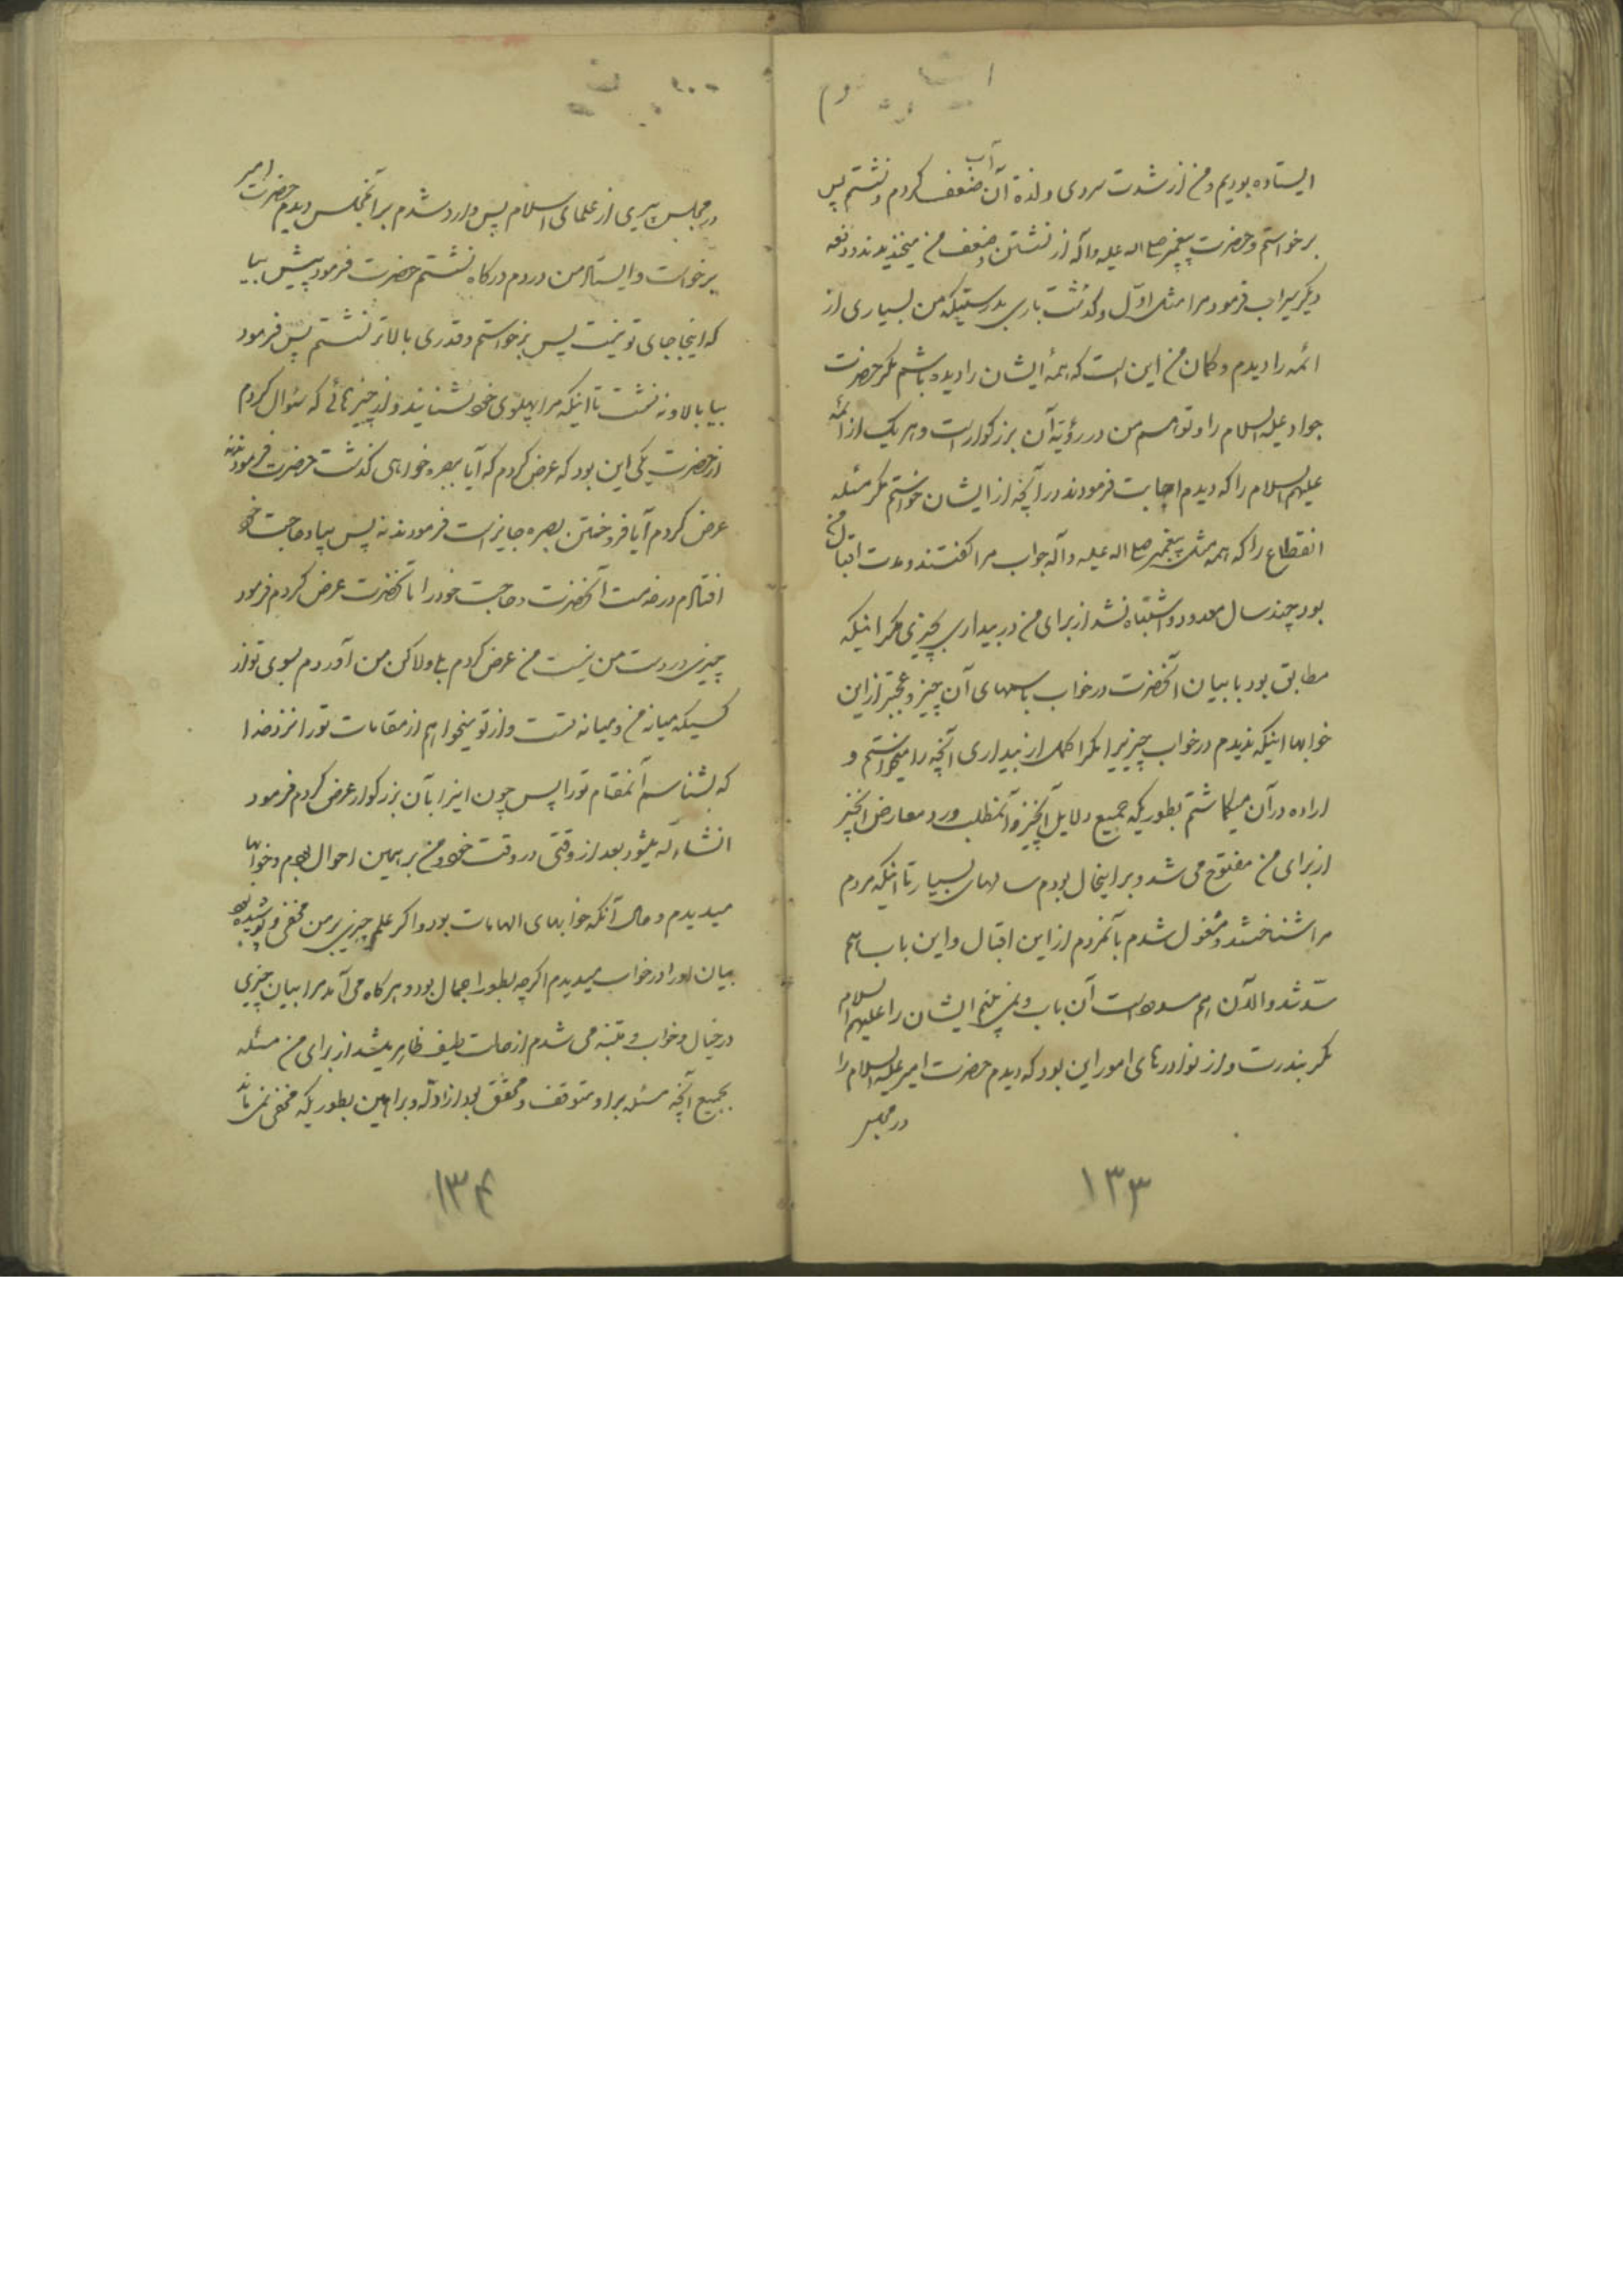 ایستاده بودیم و من از شدت سردی و لذة آن آب ضعف کردم و نشستم پس
برخواستم و حضرت پیغمبر صلی اله علیه و آله از نشستن و ضعف من میخندیدند و دفعه
دیگر سیراب فرمود مرا مثل اوّل و گذشت باری بدرستیکه من بسیاری از
ائمه را دیدم و گمان من این است که همهٔ ایشان را دیده باشم مگر حضرت
جواد علیه السلام را و توهم من در رؤیة آن بزرگوار است و هر یک از ائمه
علیهم السلام را که دیدم اجابت فرمودند در آنچه از ایشان خواستم مگر مسئله
انقطاع را که همه مثل پیغمبر صلی اله علیه و آله جواب مرا گفتند و مدت اقبال من
بود چند سال معدود و اشتباه نشد از برای من در بیداری چیزی مگر اینکه
مطابق بود با بیان آنحضرت در خواب باسهای آن چیز و عجبتر از این
خوابها اینکه ندیدم در خواب چیزیرا مگر اکمل از بیداری آنچه را میخواستم و
اراده در آن میگماشتم بطوریکه جمیع دلایل آنچیز و آنمطلب ورد معارض آنچیز
از برای من مفتوح می شد و بر اینحال بودم سالهای بسیار تا اینکه مردم
مرا شناختند و مشغول شدم بآنمردم از این اقبال و این باب هم
سدّ شد و الآن هم مسدود است آن باب و نمی بینم ایشان را علیهم السلام
مگر بندرت و از نوادرهای امور این بود که دیدم حضرت امیر علیه السلام را
در مجلس
۱۳۳
در مجلس پیری از علمای اسلام پس وارد شدم بر آنمجلس دیدم حضرت امیر
برخواست و ایستاد من در دم درگاه نشستم حضرت فرمود پیش بیا
که اینجا جای تو نیست پس برخواستم و قدری بالاتر نشستم پس فرمود
بیا بالا و نه نشست تا اینکه مرا پهلوی خود نشانید و از چیزهائی که سئوال کردم
از حضرت یکی این بود که عرض کردم که آیا بصره خواهی گذشت حضرت فرمودند نه
عرض کردم آیا فروختن بصره جایز است فرمودند نه پس بیاد حاجت خود
افتادم در خدمت آنحضرت و حاجت خود را بآنحضرت عرض کردم فرمود
چیزی در دست من نیست من عرض کردم بلی ولاکن من آوردم بسوی تو از
کسیکه میانه من و میانه تست و از تو میخواهم از مقامات تو را نزد خدا
که بشناسم آنمقام تو را پس چون اینرا بآن بزرگوار عرض کردم فرمود
انشاءاله میشود بعد از وقتی در وقت خود و من بر همین احوال بودم و خوابها
میدیدم و حال آنکه خوابهای الهامات بود و اگر علم چیزی بر من مخفی و پوشیده بود
بیان او را در خواب میدیدم اگرچه بطور اجمال بود و هرگاه می آمد مرا بیان چیزی
در خیال و خواب و متنبه می شدم از حالت لطیف ظاهر میشد از برای من مسئله
بجمیع آنچه مسئله بر او متوقف و محقق بود از ادلّه و براهین بطوریکه مخفی نمی ماند
۱۳۴